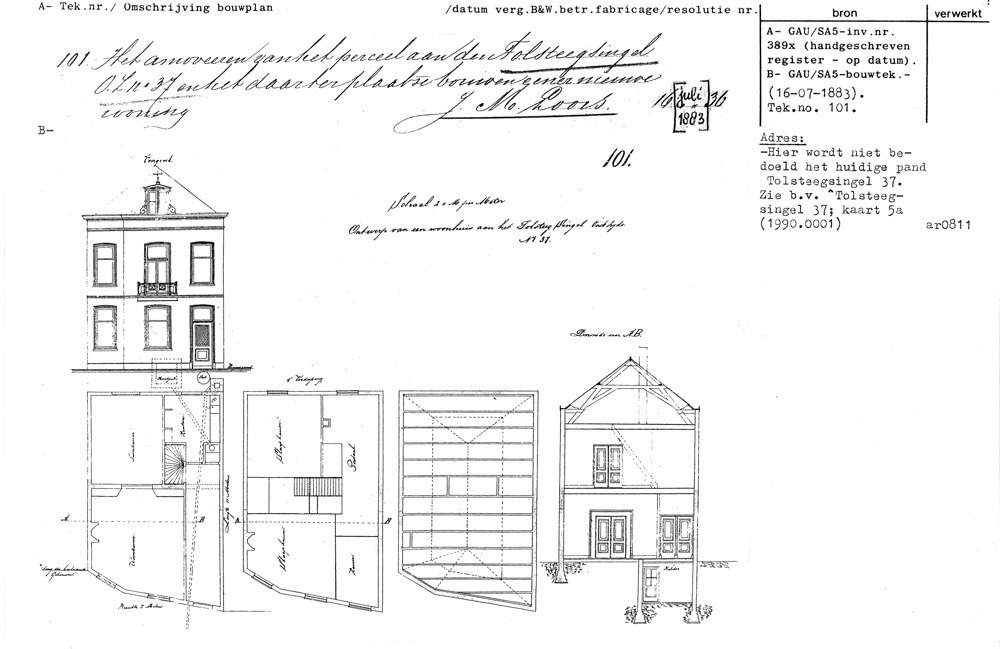 A- Tek.nr./ Omschrijving bouwplan
/datum verg.B&W.betr.fabricage/resolutie nr.
bron
verwerkt
101. Het amoveeren van het perceel aan den Tolsteegsingel
O.Z. no 37 en het daarterplaatse bouwen eener nieuwe
woning
16 [juli 1883] 36
A- GAU/SA5-inv.nr.
389x (handgeschreven
register - op datum).
B- GAU/SA5-bouwtek.-
(16-07-1883).
Tek.no. 101.
B-
Adres:
-Hier wordt niet be-
doeld het huidige pand
Tolsteegsingel 37.
Zie b.v. ^Tolsteeg-
singel 37; kaart 5a
(1990.0001)
ar0811
101.
Schaal
Ontwerp van een woonhuis aan het Tolsteeg Singel
No 37.
Doorsnede over A.B.
Keuken
A
B
A
B
Slaapkamer
Slaapkamer
Portaal
Kamer
Kelder
Breedte 7 Meter